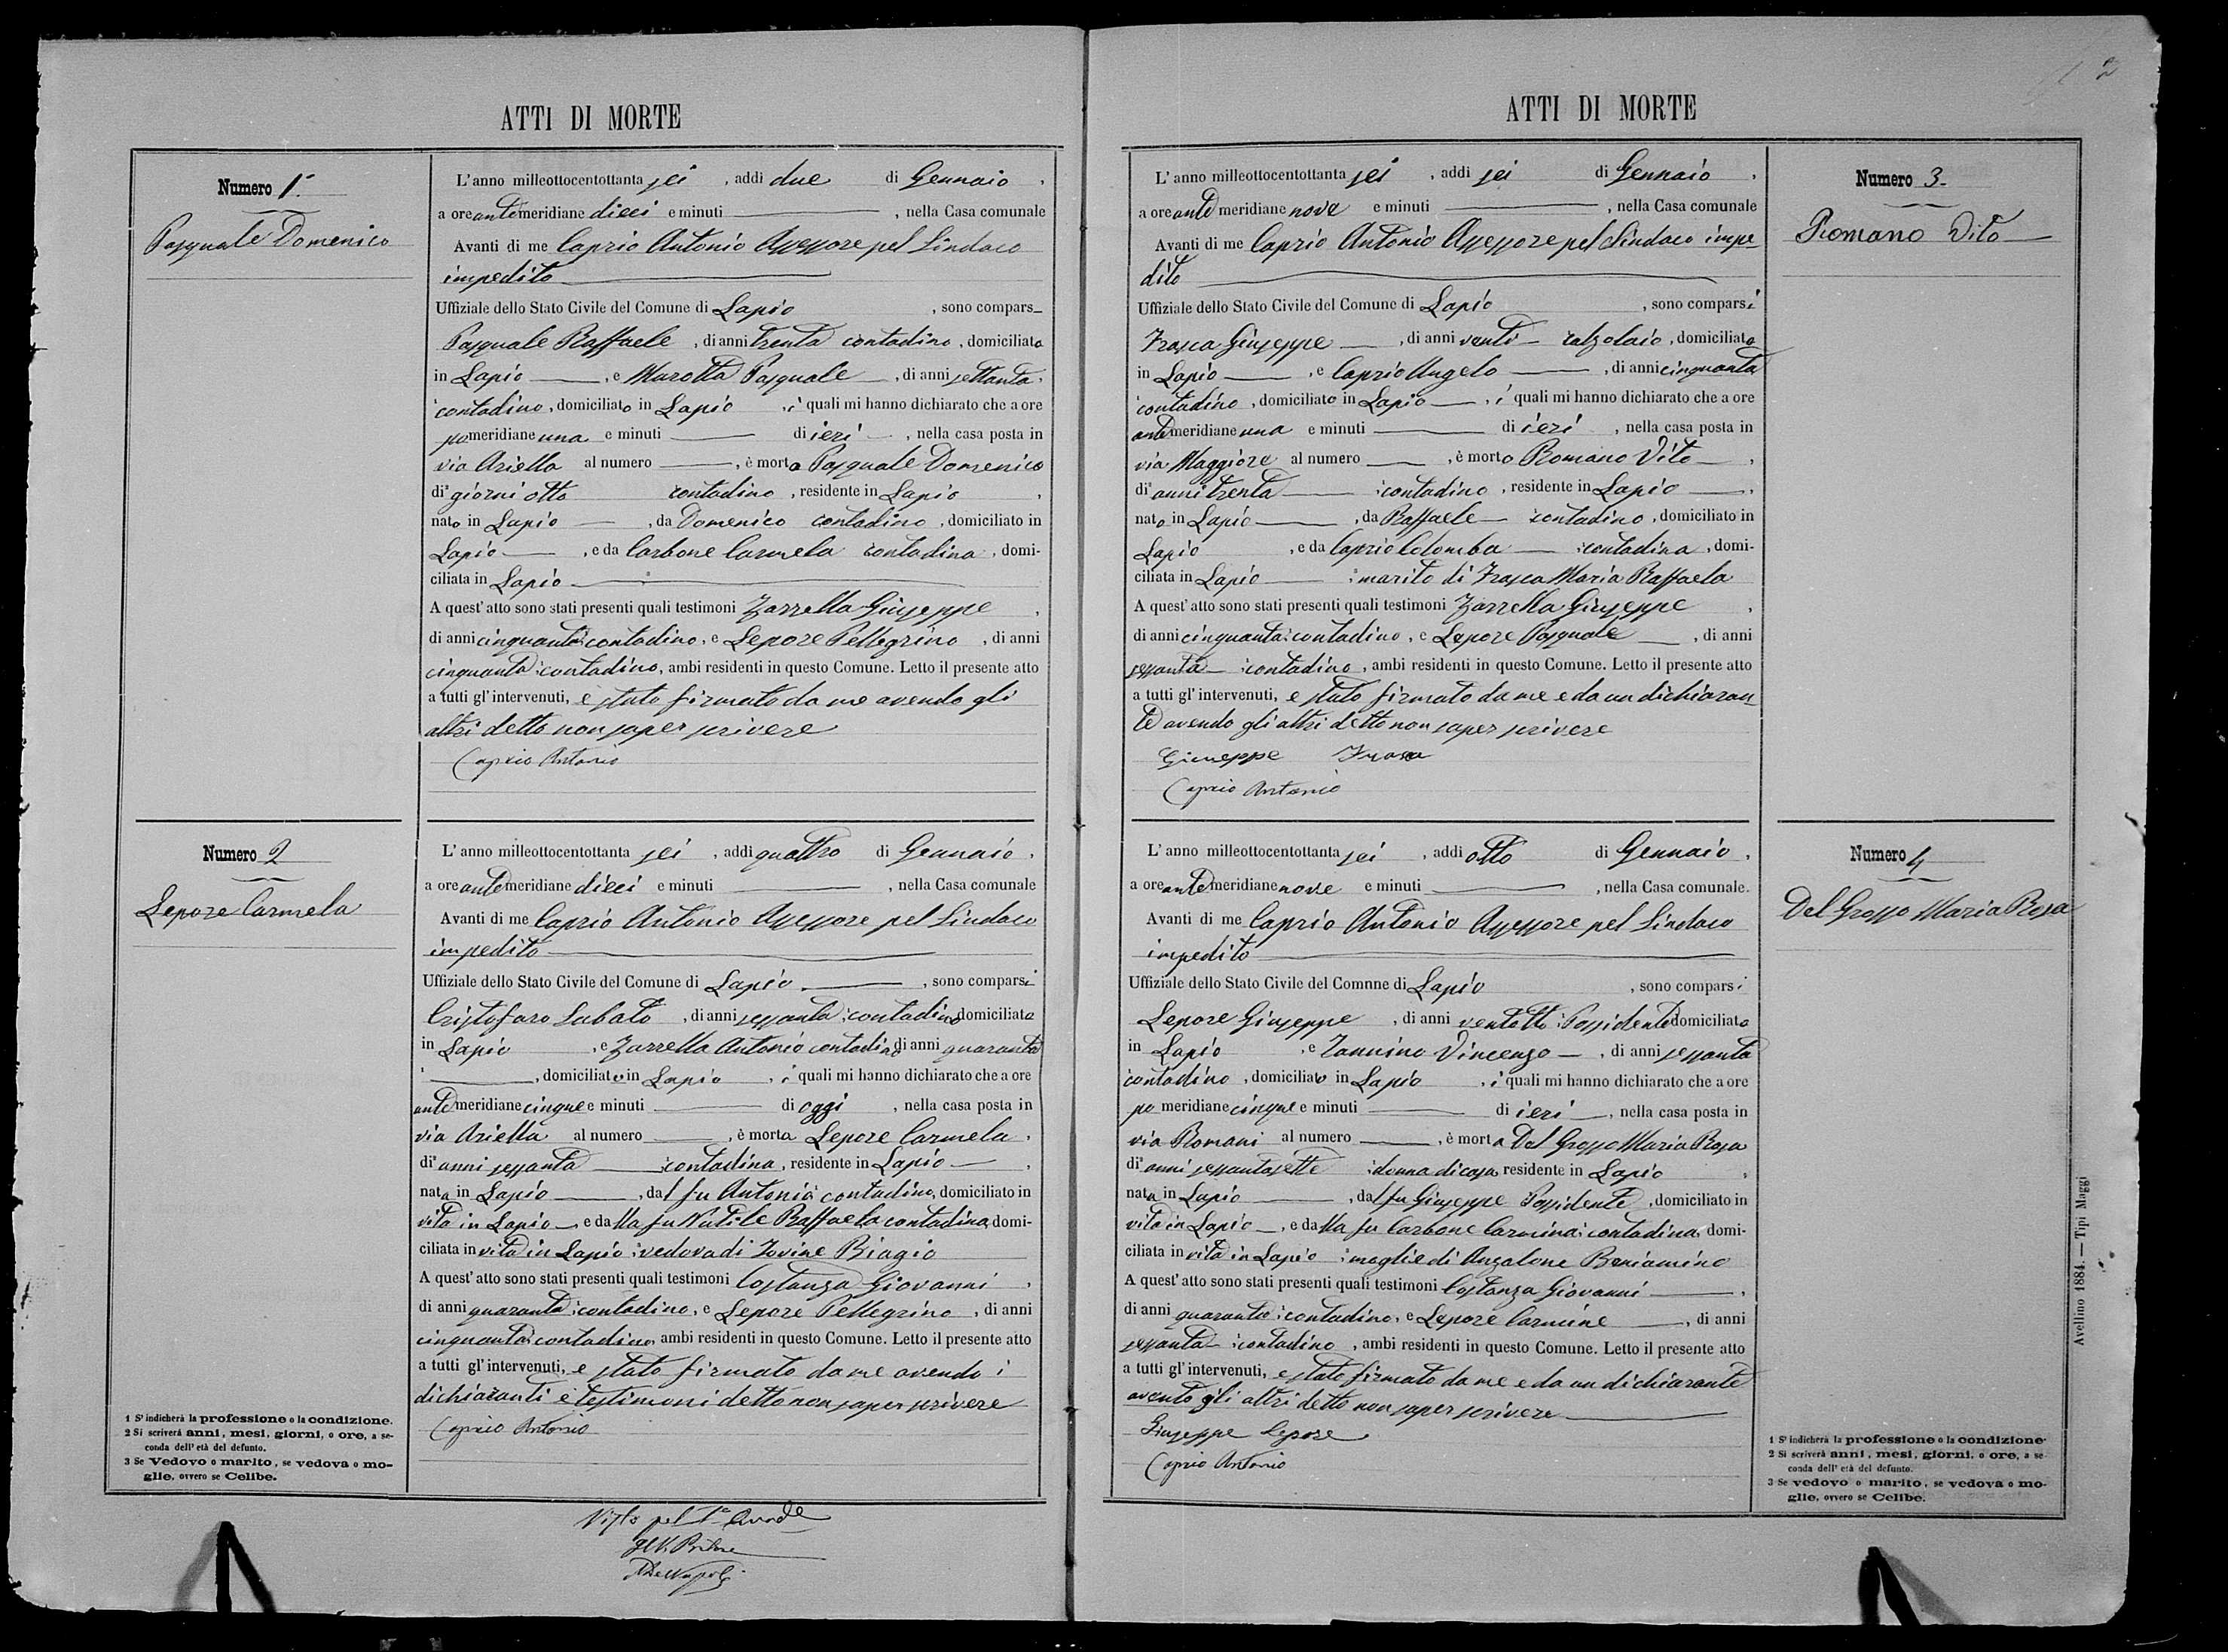 2
ATTI DI MORTE
Numero 1.
Pasquale Domenico
L'anno milleottocentottanta sei, addì due di Gennaio,
a ore antemeridiane dieci e minuti ———, nella Casa comunale
Avanti di me Caprio Antonio Assessore pel Sindaco
impedito ———
Uffiziale dello Stato Civile del Comune di Lapio, sono compars_
Pasquale Raffaele, di anni trenta contadino, domiciliato
in Lapio ———, e Marotta Pasquale, di anni settanta,
contadino, domiciliato in Lapio, i quali mi hanno dichiarato che a ore
pomeridiane una e minuti ——— di ieri, nella casa posta in
via Ariella al numero ———, è morto Pasquale Domenico
di giorni otto contadino, residente in Lapio,
nato in Lapio ———, da Domenico contadino, domiciliato in
Lapio ———, e da Carbone Carmela contadina, domi-
ciliata in Lapio ———
A quest'atto sono stati presenti quali testimoni Zarrella Giuseppe,
di anni cinquanta contadino, e Lepore Pellegrino, di anni
cinquanta contadino, ambi residenti in questo Comune. Letto il presente atto
a tutti gl'intervenuti, e stato firmato da me avendo gli
altri detto non saper scrivere
Caprio Antonio
Numero 2
Lepore Carmela
L'anno milleottocentottanta sei, addì quattro di Gennaio,
a ore antemeridiane dieci e minuti ———, nella Casa comunale
Avanti di me Caprio Antonio Assessore pel Sindaco
impedito ———
Uffiziale dello Stato Civile del Comune di Lapio ———, sono comparsi
Cristofaro Sabato, di anni sessanta contadino domiciliato
in Lapio, e Zarrella Antonio contadino di anni quaranta
———, domiciliato in Lapio, i quali mi hanno dichiarato che a ore
antemeridiane cinque e minuti ——— di oggi, nella casa posta in
via Ariella al numero ———, è morta Lepore Carmela,
di anni sessanta ——— contadina, residente in Lapio ———,
nata in Lapio ———, dal fu Antonio contadino, domiciliato in
vita in Lapio —, e dalla fu Nutile Raffaela contadina, domi-
ciliata in vita in Lapio vedova di Iovine Biagio
A quest'atto sono stati presenti quali testimoni Costanza Giovanni,
di anni quaranta contadino, e Lepore Pellegrino, di anni
cinquanta contadino, ambi residenti in questo Comune. Letto il presente atto
a tutti gl'intervenuti, e stato firmato da me avendo i
dichiaranti e testimoni detto non saper scrivere
Caprio Antonio
1 S'indicherà la professione o la condizione.
2 Si scriverà anni, mesi, giorni, o ore, a se-
conda dell'età del defunto.
3 Se Vedovo o marito, se vedova o mo-
glie, ovvero se Celibe.
Visto pel
ATTI DI MORTE
Numero 3.
Romano Vito
L'anno milleottocentottanta sei, addì sei di Gennaio,
a ore antemeridiane nove e minuti ———, nella Casa comunale
Avanti di me Caprio Antonio Assessore pel Sindaco impe-
dito ———
Uffiziale dello Stato Civile del Comune di Lapio, sono comparsi
Frasca Giuseppe —, di anni venti — calzolaio, domiciliato
in Lapio ———, e Caprio Angelo ———, di anni cinquanta
contadino, domiciliato in Lapio —, i quali mi hanno dichiarato che a ore
antemeridiane una e minuti ——— di ieri, nella casa posta in
via Maggiore al numero ———, è morto Romano Vito —,
di anni trenta ——— contadino, residente in Lapio ———,
nato in Lapio ———, da Raffaele — contadino, domiciliato in
Lapio, e da Caprio Colomba — contadina, domi-
ciliata in Lapio ——— marito di Frasca Maria Raffaela
A quest'atto sono stati presenti quali testimoni Zarrella Giuseppe,
di anni cinquanta contadino, e Lepore Pasquale —, di anni
sessanta — contadino, ambi residenti in questo Comune. Letto il presente atto
a tutti gl'intervenuti, e stato firmato da me e da un dichiaran
te avendo gli altri detto non saper scrivere
Giuseppe Frasca
Caprio Antonio
Numero 4
Del Grosso Maria Rosa
L'anno milleottocentottanta sei, addì otto di Gennaio,
a ore antemeridiane nove e minuti ———, nella Casa comunale.
Avanti di me Caprio Antonio Assessore pel Sindaco
impedito ———
Uffiziale dello Stato Civile del Comnne di Lapio, sono comparsi
Lepore Giuseppe, di anni ventotto Possidente domiciliato
in Lapio, e Iannino Vincenzo —, di anni sessanta
contadino, domiciliato in Lapio, i quali mi hanno dichiarato che a ore
pomeridiane cinque e minuti ——— di ieri —, nella casa posta in
via Romani al numero ———, è morta Del Grosso Maria Rosa
di anni sessantasette donna di casa, residente in Lapio,
nata in Lapio ———, dal fu Giuseppe Possidente, domiciliato in
vita in Lapio —, e dalla fu Carbone Carmina contadina, domi-
ciliata in vita in Lapio moglie di Anzalone Beniamino
A quest'atto sono stati presenti quali testimoni Costanza Giovanni ———,
di anni quaranta contadino, e Lepore Carmine ———, di anni
sessanta — contadino, ambi residenti in questo Comune. Letto il presente atto
a tutti gl'intervenuti, e stato firmato da me e da un dichiarante
avento gli altri detto non saper scrivere ———
Giuseppe Lepore
Caprio Antonio
1 S'indicherà la professione o la condizione.
2 Si scriverà anni, mesi, giorni, o ore, a se-
conda dell'età del defunto.
3 Se vedovo o marito, se vedova o mo-
glie, ovvero se Celibe.
Avellino 1884. — Tipi Maggi